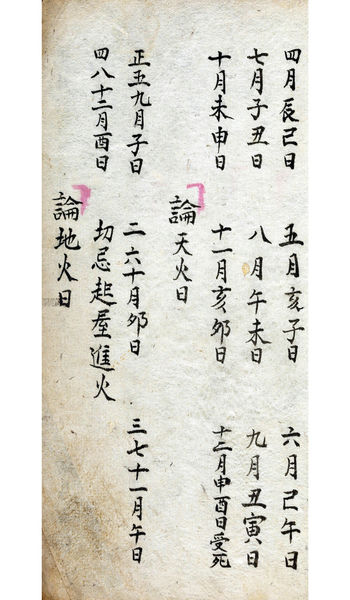 四月辰巳日 五月亥子日 六月己午日
七月子丑日 八月午未日 九月丑寅日
十月未申日 十一月亥卯日 十二月申酉日受死
論天火日
正五九月子日 二六十月卯日 三七十一月午日
四八十二月酉日 切忌起屋進火
論地火日